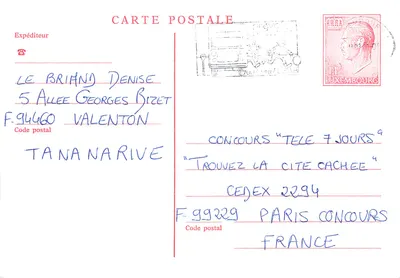 CARTE POSTALE
Expéditeur
LE BRIAND DENISE
5 ALLEE GEORGES BIZET
F.94460 VALENTON
Code postal
TANANARIVE
LUXEMBOURG
CONCOURS "TELE 7 JOURS"
"TROUVEZ LA CITE CACHEE"
CEDEX 2294
F.99229 PARIS CONCOURS
Code postal
FRANCE